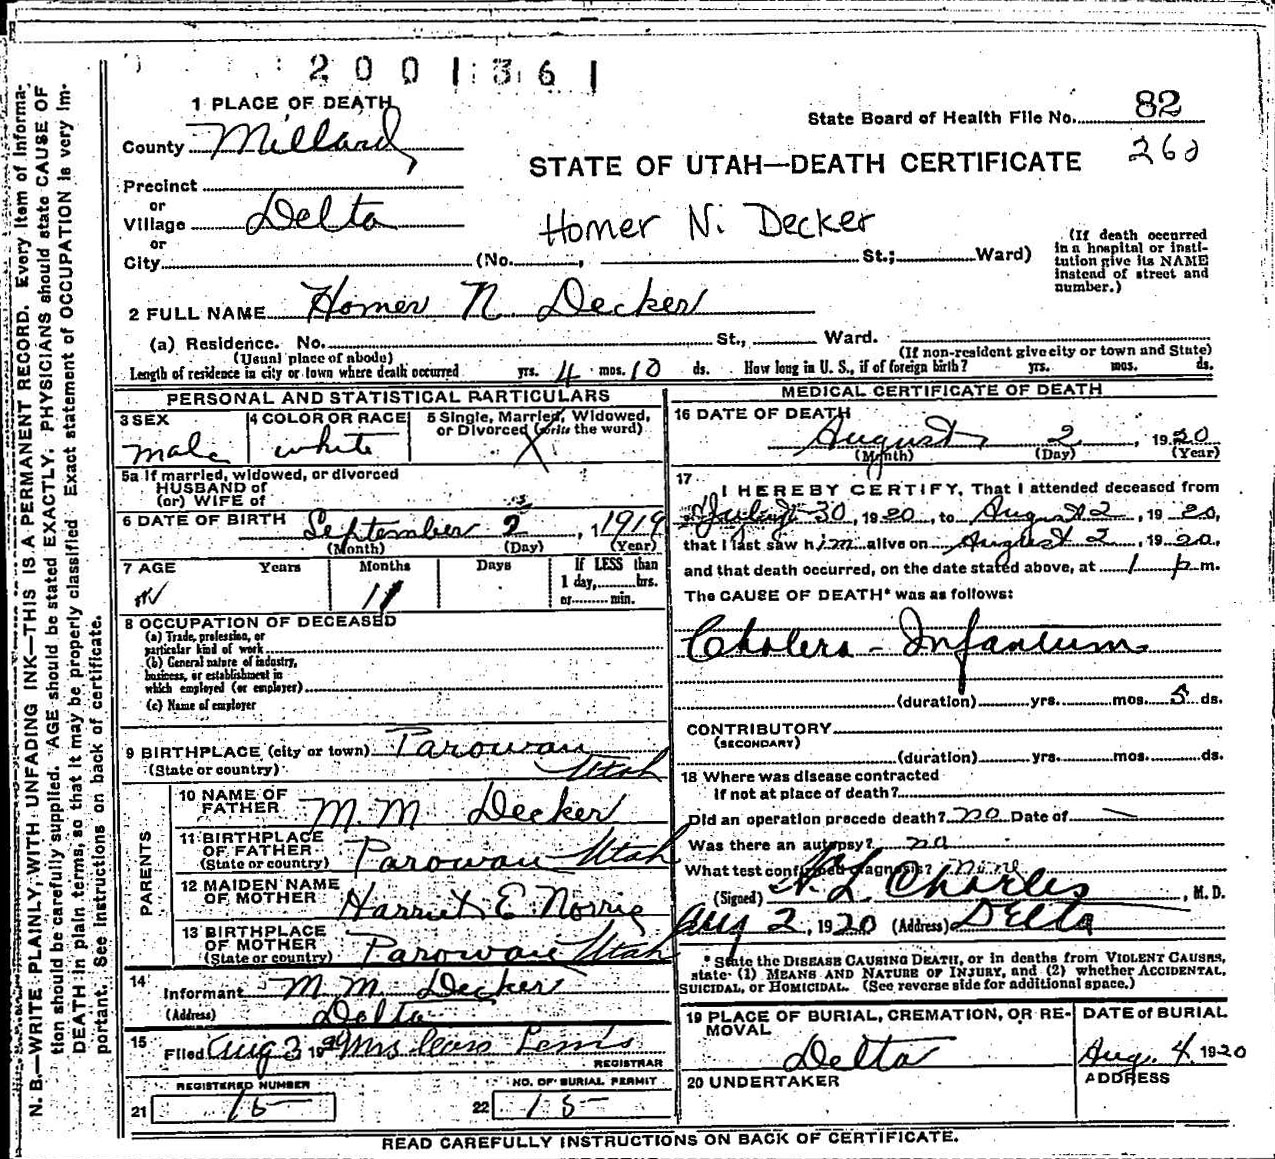 2001361
1 PLACE OF DEATH
State Board of Health File No. 82
County Millard,
260
STATE OF UTAH—DEATH CERTIFICATE
Precinct
or
Village Delta
Homer N. Decker
or
City (No. , St.; Ward)
(If death occurred in a hospital or institution give its NAME instead of street and number.)
2 FULL NAME Homer N. Decker
(a) Residence. No. St., Ward.
(Usual place of abode) (If non-resident give city or town and State)
Length of residence in city or town where death occurred yrs. 4 mos. 10 ds. How long in U. S., if of foreign birth? yrs. mos. ds.
PERSONAL AND STATISTICAL PARTICULARS
3 SEX male
4 COLOR OR RACE white
5 Single, Married, Widowed, or Divorced (write the word) X
5a If married, widowed, or divorced
HUSBAND of
(or) WIFE of
6 DATE OF BIRTH September 2, 1919
(Month) (Day) (Year)
7 AGE Years Months Days If LESS than
1 day, hrs.
or min.
11
8 OCCUPATION OF DECEASED
(a) Trade, profession, or
particular kind of work
(b) General nature of industry,
business, or establishment in
which employed (or employer)
(c) Name of employer
9 BIRTHPLACE (city or town) Parowan
(State or country) Utah
PARENTS
10 NAME OF FATHER M. M. Decker
11 BIRTHPLACE OF FATHER
(State or country) Parowan Utah
12 MAIDEN NAME OF MOTHER Harriet E Norris
13 BIRTHPLACE OF MOTHER
(State or country) Parowan Utah
14 Informant M M Decker
(Address) Delta
15 Filed Aug 3 19 Mrs Lewis
REGISTRAR
REGISTERED NUMBER
21 15
NO. OF BURIAL PERMIT
22 15
MEDICAL CERTIFICATE OF DEATH
16 DATE OF DEATH
August 2, 1920
(Month) (Day) (Year)
17 I HEREBY CERTIFY, That I attended deceased from
July 30, 1920, to August 2, 1920,
that I last saw him alive on August 2, 1920,
and that death occurred, on the date stated above, at 1 p m.
The CAUSE OF DEATH* was as follows:
Cholera - Infantum
(duration) yrs. mos. 5 ds.
CONTRIBUTORY
(SECONDARY)
(duration) yrs. mos. ds.
18 Where was disease contracted
if not at place of death?
Did an operation precede death? no Date of —
Was there an autopsy? no
What test confirmed diagnosis? None
(Signed) L. Charles, M. D.
Aug 2, 1920 (Address) Delta
* State the DISEASE CAUSING DEATH, or in deaths from VIOLENT CAUSES,
state (1) MEANS AND NATURE OF INJURY, and (2) whether ACCIDENTAL,
SUICIDAL, or HOMICIDAL. (See reverse side for additional space.)
19 PLACE OF BURIAL, CREMATION, OR REMOVAL
Delta
DATE of BURIAL
Aug. 4 1920
20 UNDERTAKER
ADDRESS
READ CAREFULLY INSTRUCTIONS ON BACK OF CERTIFICATE.
N. B.—WRITE PLAINLY, WITH UNFADING INK—THIS IS A PERMANENT RECORD. Every item of information should be carefully supplied. AGE should be stated EXACTLY. PHYSICIANS should state CAUSE OF DEATH in plain terms, so that it may be properly classified. Exact statement of OCCUPATION is very important. See instructions on back of certificate.